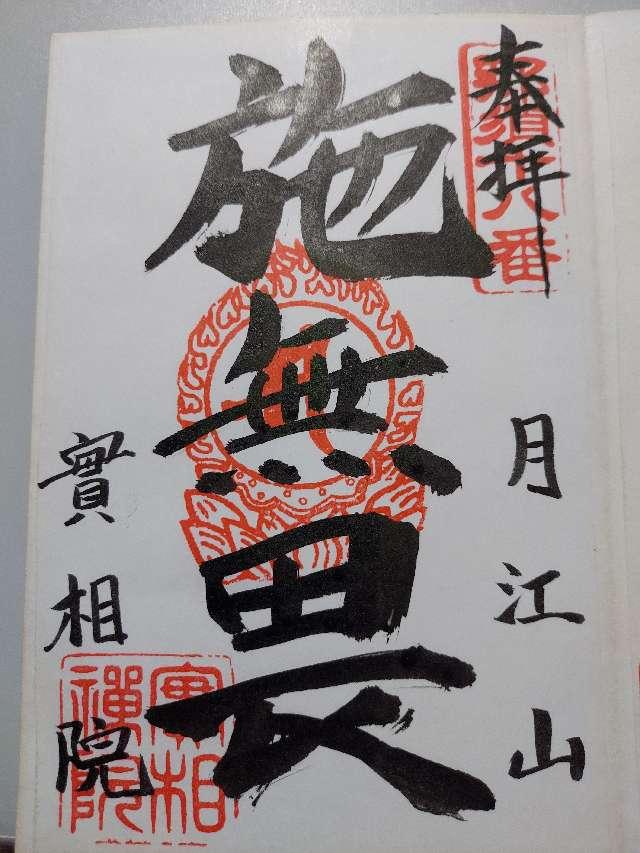 奉拝
月江山
施無畏
實相院
實相
禪院